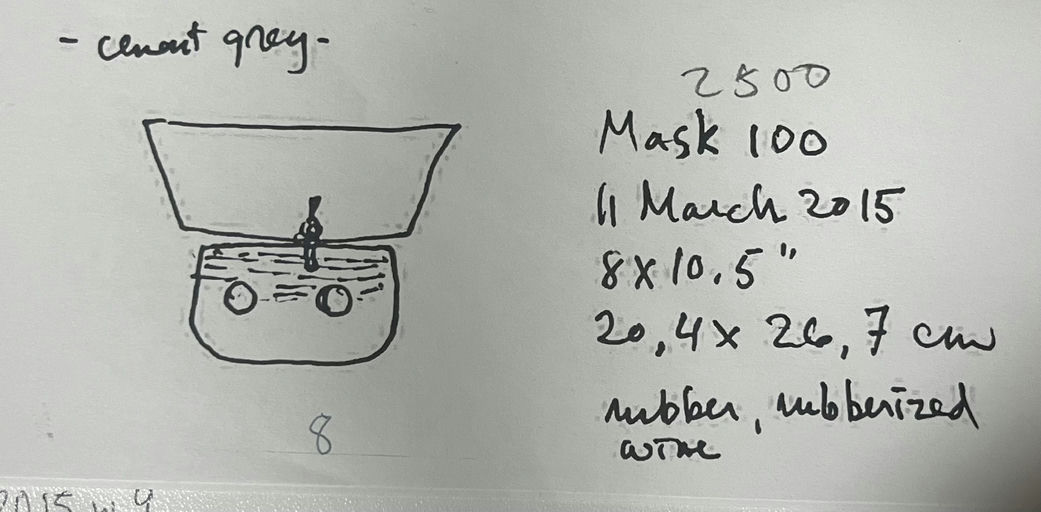 - cement grey -
2500
Mask 100
11 March 2015
8x10.5"
20,4 x 26,7 cm
rubber, rubberized
wire
8
2015